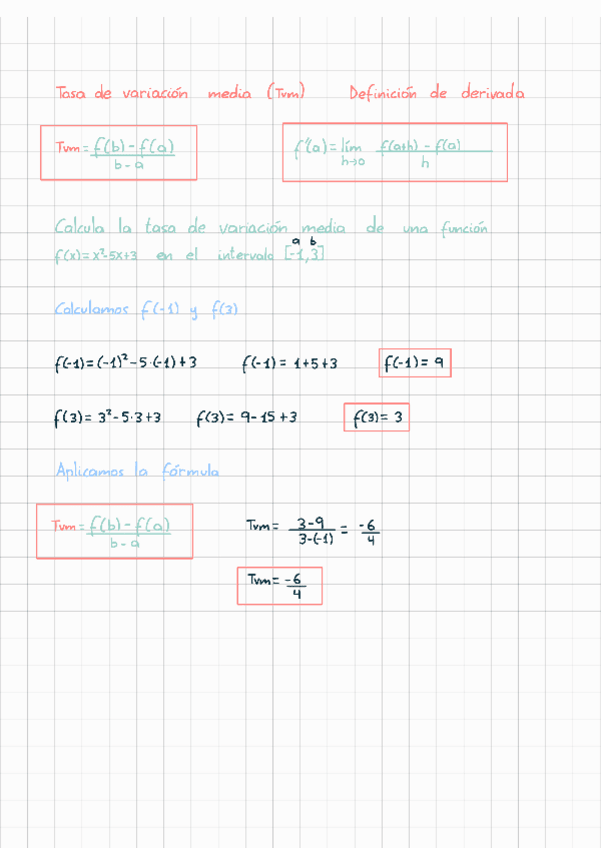 Tasa de variación media (Tvm) Definición de derivada
Tvm = f(b) - f(a) / b - a f'(a) = lím h→0 f(a+h) - f(a) / h
Calcula la tasa de variación media de una función
a b
f(x) = x²-5x+3 en el intervalo [-1,3]
Calculamos f(-1) y f(3)
f(-1) = (-1)² - 5·(-1) + 3 f(-1) = 1+5+3 f(-1) = 9
f(3) = 3² - 5·3 + 3 f(3) = 9 - 15 + 3 f(3) = 3
Aplicamos la fórmula
Tvm = f(b) - f(a) / b - a Tvm = 3-9 / 3-(-1) = -6 / 4
Tvm = -6 / 4